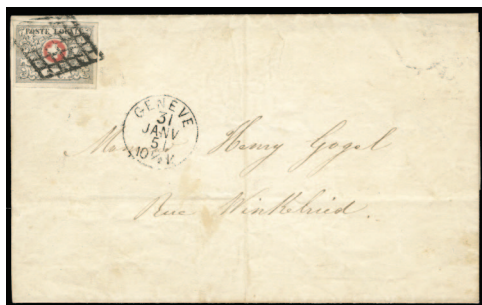 POSTE LOCALE
GENÈVE
31
JANV
51
10½ M.
Henry Gogel
Rue Winkelried.